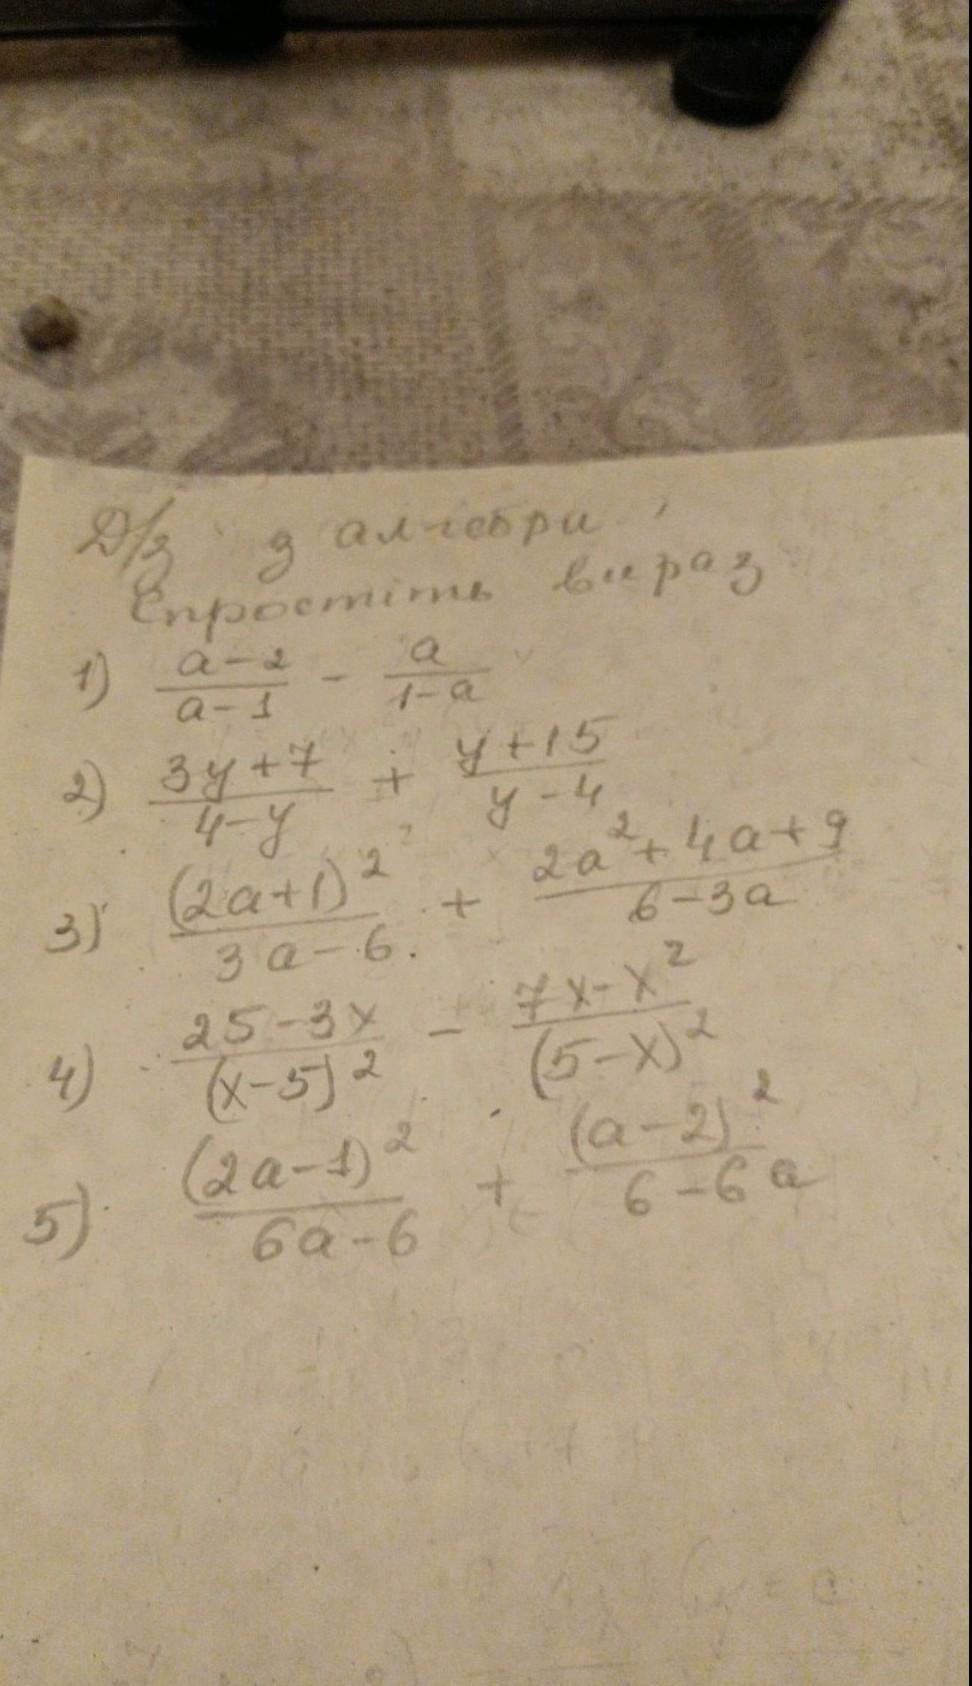 Д/з з алгебри
Спростіть вираз
1) \frac{a-2}{a-1} - \frac{a}{1-a}
2) \frac{3y+7}{4-y} + \frac{y+15}{y-4}
3) \frac{(2a+1)^2}{3a-6} + \frac{2a^2+4a+9}{6-3a}
4) \frac{25-3x}{(x-5)^2} - \frac{7x-x^2}{(5-x)^2}
5) \frac{(2a-1)^2}{6a-6} + \frac{(a-2)^2}{6-6a}